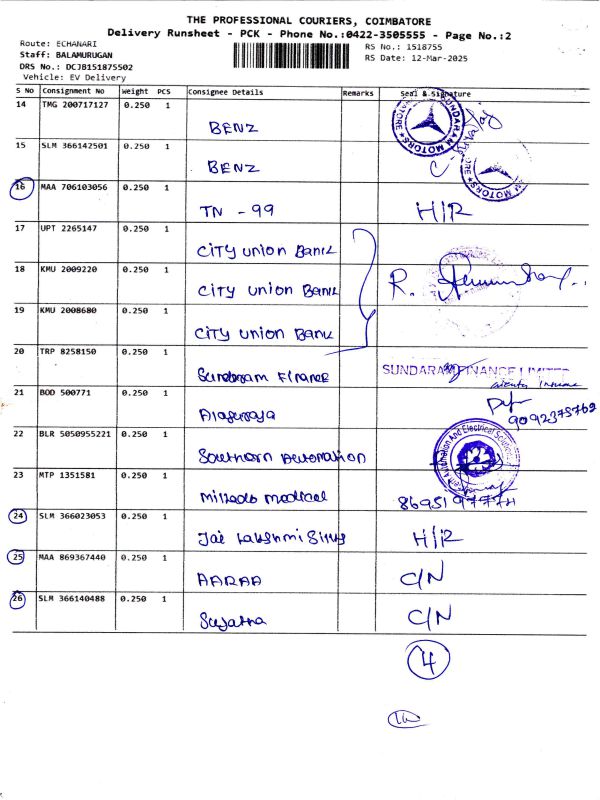 THE PROFESSIONAL COURIERS, COIMBATORE
Delivery Runsheet - PCK - Phone No.:0422-3505555 - Page No.:2
Route: ECHANARI
RS No.: 1518755
Staff: BALAMURUGAN
RS Date: 12-Mar-2025
DRS No.: DCJB151875502
Vehicle: EV Delivery
S No Consignment No Weight PCS Consignee Details Remarks Seal & Signature
14 TMG 200717127 0.250 1
BENZ
SUNDARAM MOTORS
15 SLM 366142501 0.250 1
BENZ
16 MAA 706103056 0.250 1
TN - 99 H/R
17 UPT 2265147 0.250 1
CITY union Bank
18 KMU 2009220 0.250 1
CITY union Bank R.
19 KMU 2008680 0.250 1
CITY union Bank
20 TRP 8258150 0.250 1
Sundaram Finance SUNDARAM FINANCE LIMITED
21 BOD 500771 0.250 1
9092375762
22 BLR 5050955221 0.250 1
Southern Automation
Automation And Electrical Sciences
23 MTP 1351581 0.250 1
medical
24 SLM 366023053 0.250 1
Jai Lakshmi H/R
25 MAA 869367440 0.250 1
AARAA C/N
26 SLM 366140488 0.250 1
Sujatha C/N
4